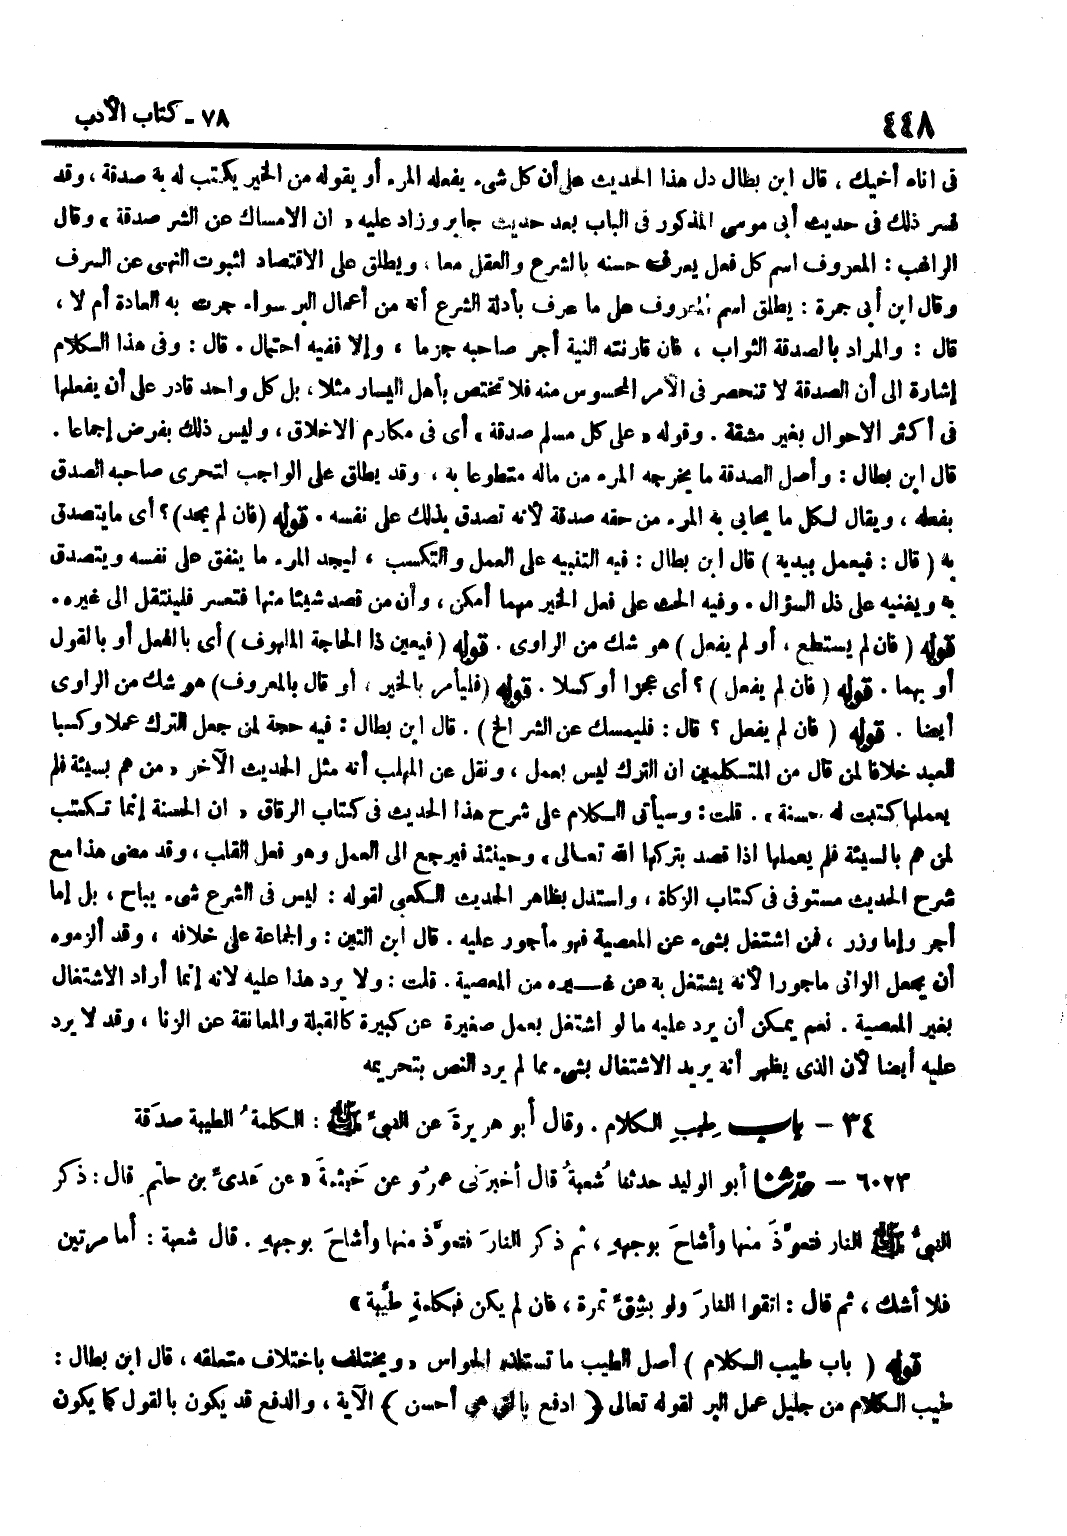 ٤٤٨
٧٨ - كتاب الأدب
فى اناء أخيك ، قال ابن بطال دل هذا الحديث على أن كل شىء يفعله المرء أو يقوله من الخير يكتب له به صدقة ، وقد
فسر ذلك فى حديث أبى موسى المذكور فى الباب بعد حديث جابر وزاد عليه « ان الامساك عن الشر صدقة » وقال
الراغب : المعروف اسم كل فعل يعرف حسنه بالشرع والعقل معا ، ويطلق على الاقتصاد لثبوت النهى عن السرف
وقال ابن أبى جمرة : يطلق اسم المعروف على ما عرف بأدلة الشرع أنه من أعمال البر سواء جرت به العادة أم لا ،
قال : والمراد بالصدقة الثواب ، فان قارنته النية أجر صاحبه جزما ، وإلا ففيه احتمال . قال : وفى هذا الكلام
إشارة الى أن الصدقة لا تنحصر فى الأمر المحسوس منه فلا تختص بأهل اليسار مثلا ، بل كل واحد قادر على أن يفعلها
فى أكثر الاحوال بغير مشقة . وقوله « على كل مسلم صدقة » أى فى مكارم الاخلاق ، وليس ذلك بفرض إجماعا .
قال ابن بطال : وأصل الصدقة ما يخرجه المرء من ماله متطوعا به ، وقد يطلق على الواجب لتحرى صاحبه الصدق
بفعله ، ويقال لكل ما يحابى به المرء من حقه صدقة لأنه تصدق بذلك على نفسه . قوله (فان لم يجد)؟ أى ما يتصدق
به ( قال : فيعمل بيديه ) قال ابن بطال : فيه التنبيه على العمل والتكسب ، ليجد المرء ما ينفق على نفسه ويتصدق
به ويغنيه على ذل السؤال . وفيه الحث على فعل الخير مهما أمكن ، وأن من قصد شيئا منها فتعسر فلينتقل الى غيره .
قوله ( فان لم يستطع ، أو لم يفعل ) هو شك من الراوى . قوله ( فيعين ذا الحاجة الملهوف ) أى بالفعل أو بالقول
أو بهما . قوله ( فان لم يفعل ) ؟ أى عجزا أو كسلا . قوله (فليأمر بالخير ، أو قال بالمعروف) هو شك من الراوى
أيضا . قوله ( فان لم يفعل ؟ قال : فليمسك عن الشر الخ ) . قال ابن بطال : فيه حجة لمن جعل الترك عملا وكسبا
للعبد خلافا لمن قال من المتكلمين ان الترك ليس بعمل ، ونقل عن المهلب أنه مثل الحديث الآخر « من هم بسيئة فلم
يعملها كتبت له حسنة » . قلت : وسيأتى الكلام على شرح هذا الحديث فى كتاب الرقاق « ان الحسنة إنما تكتب
لمن هم بالسيئة فلم يعملها اذا قصد بتركها الله تعالى » وحينئذ فيرجع الى العمل وهو فعل القلب ، وقد مضى هذا مع
شرح الحديث مستوفى فى كتاب الزكاة ، واستدل بظاهر الحديث الكعبى لقوله : ليس فى الشرع شىء يباح ، بل إما
أجر وإما وزر ، فمن اشتغل بشىء عن المعصية فهو مأجور عليه . قال ابن التين : والجماعة على خلافه ، وقد ألزموه
أن يجعل الزانى ماجورا لأنه يشتغل به عن غيره من المعصية . قلت : ولا يرد هذا عليه لانه إنما أراد الاشتغال
بغير المعصية . نعم يمكن أن يرد عليه ما لو اشتغل بعمل صغيرة عن كبيرة كالقبلة والمعانقة عن الزنا ، وقد لا يرد
عليه أيضا لأن الذى يظهر أنه يريد الاشتغال بشىء مما لم يرد النص بتحريمه
٣٤ - باب طيب الكلام . وقال أبو هريرةَ عن النبىِّ ﷺ : الكلمةُ الطيبة صدَقة
٦٠٢٣ - حدثنا أبو الوليد حدثنا شُعبةُ قال أخبرَنى عمرٌو عن خَيثمةَ « عن عَدىِّ بن حاتمٍ قال : ذكر
النبىُّ ﷺ النار فتعوَّذَ منها وأشاحَ بوجههِ ، ثم ذكر النارَ فتعوَّذ منها وأشاحَ بوجههِ . قال شعبة : أما مرتين
فلا أشك ، ثم قال : اتقوا النارَ ولو بشِقِّ تمرة ، فان لم يكن فبكلمةٍ طيِّبة »
قوله ( باب طيب الكلام ) أصل الطيب ما تستلذه الحواس ، ويختلف باختلاف متعلقه ، قال ابن بطال :
طيب الكلام من جليل عمل البر لقوله تعالى ﴿ ادفع بالتى هى أحسن ﴾ الآية ، والدفع قد يكون بالقول كما يكون